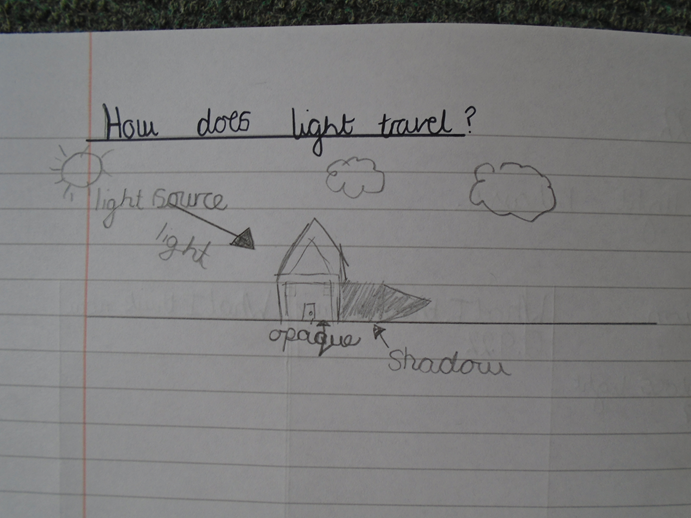 How does light travel?
light source
light
opaque
Shadow